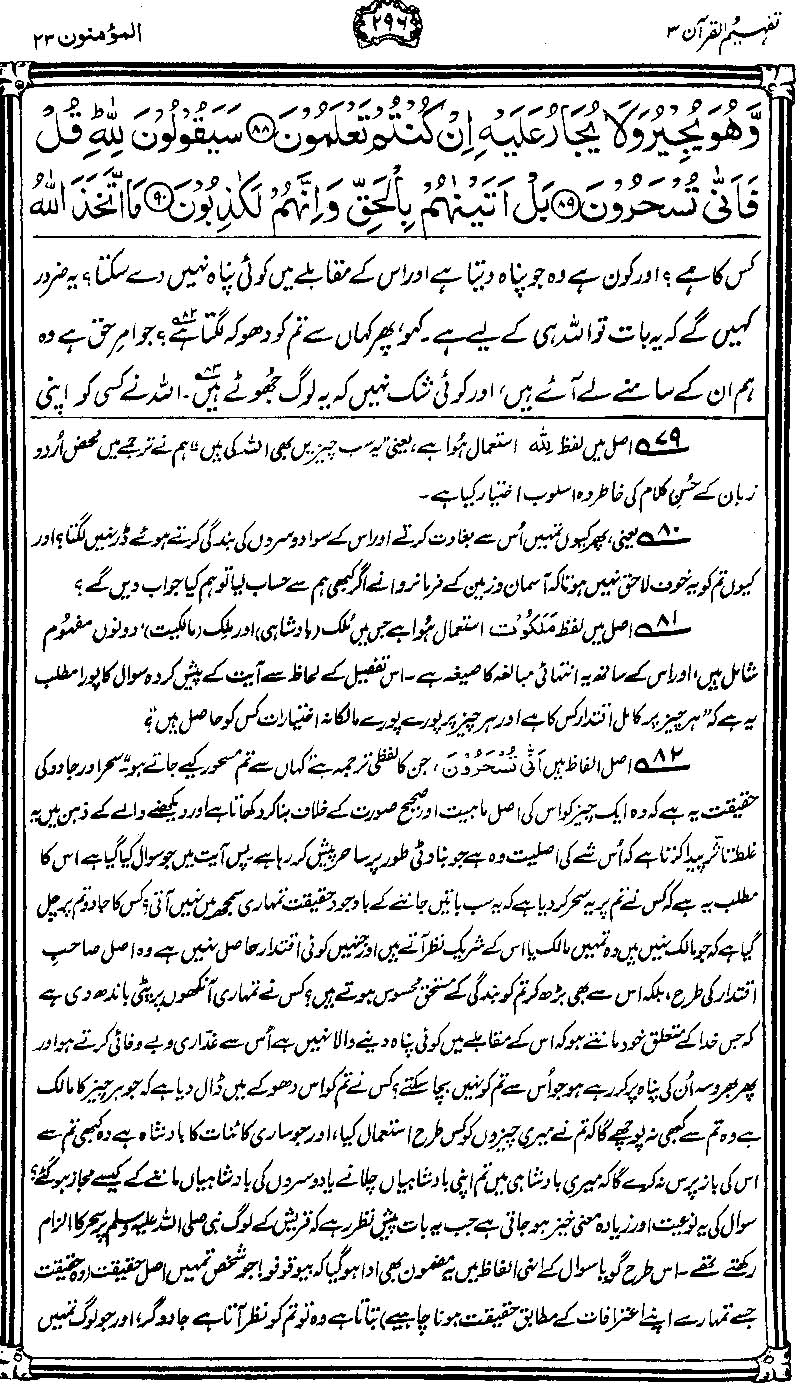 تفہیم القرآن ۳
۲۹۶
المؤمنون ۲۳
وَّهُوَ يُجِيْرُ وَلَا يُجَارُ عَلَيْهِ اِنْ كُنْتُمْ تَعْلَمُوْنَ ﴿۸۸﴾ سَيَقُوْلُوْنَ لِلّٰهِ ؕ قُلْ
فَاَنّٰى تُسْحَرُوْنَ ﴿۸۹﴾ بَلْ اَتَيْنٰهُمْ بِالْحَقِّ وَاِنَّهُمْ لَكٰذِبُوْنَ ﴿۹۰﴾ مَا اتَّخَذَ اللّٰهُ
کس کا ہے؟ اور کون ہے وہ جو پناہ دیتا ہے اور اس کے مقابلے میں کوئی پناہ نہیں دے سکتا؟ یہ ضرور
کہیں گے کہ یہ بات تو اللہ ہی کے لیے ہے۔ کہو، پھر کہاں سے تم کو دھوکہ لگتا ہے؟۸۲ جو امرِ حق ہے وہ
ہم ان کے سامنے لے آئے ہیں، اور کوئی شک نہیں کہ یہ لوگ جھوٹے ہیں۔۸۳ اللہ نے کسی کو اپنی
۷۹ اصل میں لفظ لِلّٰہِ استعمال ہُوا ہے، یعنی ”یہ سب چیزیں بھی اللہ کی ہیں“ ہم نے ترجمے میں محض اُردو
زبان کے حُسنِ کلام کی خاطر وہ اسلوب اختیار کیا ہے۔
۸۰ یعنی، پھر کیوں تمہیں اُس سے بغاوت کرتے اور اس کے سوا دوسروں کی بندگی کرتے ہوئے ڈر نہیں لگتا؟ اور
کیوں تم کو یہ خوف لاحق نہیں ہوتا کہ آسمان و زمین کے فرمانروا نے اگر کبھی ہم سے حساب لیا تو ہم کیا جواب دیں گے؟
۸۱ اصل میں لفظ مَلَکُوْت استعمال ہُوا ہے جس میں مُلک (بادشاہی) اور مِلک (مالکیت)، دونوں مفہوم
شامل ہیں، اور اس کے ساتھ یہ انتہائی مبالغہ کا صیغہ ہے۔ اس تفصیل کے لحاظ سے آیت کے پیش کردہ سوال کا پورا مطلب
یہ ہے کہ ”ہر چیز پر کامل اقتدار کس کا ہے اور ہر چیز پر پورے پورے مالکانہ اختیارات کس کو حاصل ہیں“؟
۸۲ اصل الفاظ ہیں اَنّٰی تُسْحَرُوْنَ، جن کا لفظی ترجمہ ہے ”کہاں سے تم مسحور کیے جاتے ہو“۔ سحر اور جادو کی
حقیقت یہ ہے کہ وہ ایک چیز کو اس کی اصل ماہیت اور صحیح صورت کے خلاف بنا کر دکھاتا ہے اور دیکھنے والے کے ذہن میں یہ
غلط تأثر پیدا کرتا ہے کہ اُس شے کی اصلیت وہ ہے جو بناوٹی طور پر ساحر پیش کر رہا ہے۔ پس آیت میں جو سوال کیا گیا ہے اس کا
مطلب یہ ہے کہ کس نے تم پر یہ سحر کر دیا ہے کہ یہ سب باتیں جاننے کے باوجود حقیقت تمہاری سمجھ میں نہیں آتی؟ کس کا جادو تم پر چل
گیا ہے کہ جو مالک نہیں ہیں وہ تمہیں مالک یا اس کے شریک نظر آتے ہیں اور جنہیں کوئی اقتدار حاصل نہیں ہے وہ اصل صاحبِ
اقتدار کی طرح، بلکہ اس سے بھی بڑھ کر تم کو بندگی کے مستحق محسوس ہوتے ہیں؟ کس نے تمہاری آنکھوں پر پٹی باندھ دی ہے
کہ جس خدا کے متعلق خود مانتے ہو کہ اس کے مقابلے میں کوئی پناہ دینے والا نہیں ہے اُس سے غدّاری و بے وفائی کرتے ہو اور
پھر بھروسہ اُن کی پناہ پر کر رہے ہو جو اُس سے تم کو نہیں بچا سکتے؟ کس نے تم کو اس دھوکے میں ڈال دیا ہے کہ جو ہر چیز کا مالک
ہے وہ تم سے کبھی نہ پوچھے گا کہ تم نے میری چیزوں کو کس طرح استعمال کیا، اور جو ساری کائنات کا بادشاہ ہے وہ کبھی تم سے
اس کی باز پرس نہ کرے گا کہ میری بادشاہی میں تم اپنی بادشاہیاں چلانے یا دوسروں کی بادشاہیاں ماننے کے کیسے مجاز ہو گئے؟
سوال کی یہ نوعیت اور زیادہ معنی خیز ہو جاتی ہے جب یہ بات پیش نظر رہے کہ قریش کے لوگ نبی صلی اللہ علیہ وسلم پر سحر کا الزام
رکھتے تھے۔ اس طرح گویا سوال کے انہی الفاظ میں یہ مضمون بھی ادا ہو گیا کہ بیوقوفو! جو شخص تمہیں اصل حقیقت (وہ حقیقت
جسے تمہارے اپنے اعترافات کے مطابق حقیقت ہونا چاہیے) بتاتا ہے وہ تو تم کو نظر آتا ہے جادوگر، اور جو لوگ تمہیں